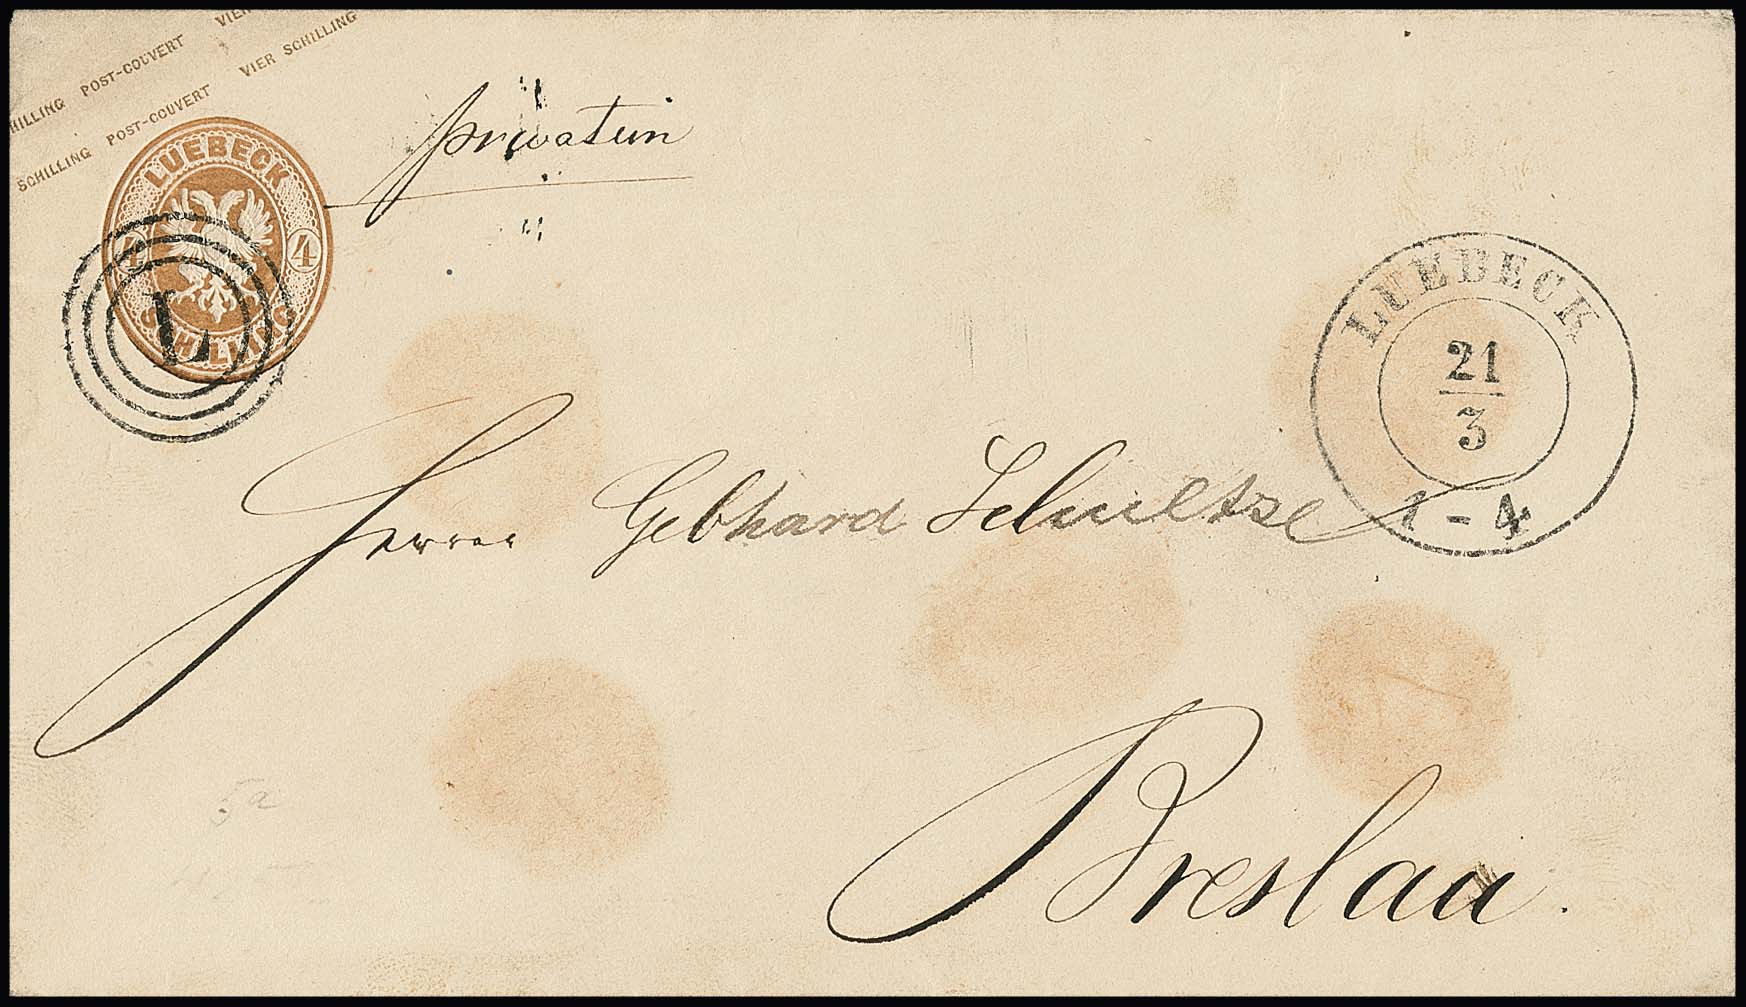 VIER
HILLING POST-COUVERT
VIER SCHILLING
SCHILLING POST-COUVERT
LUEBECK
4 4
SCHILLING
L
LUEBECK
21
3
1-4
Herrn Gebhard Schultze
Breslau.
5a